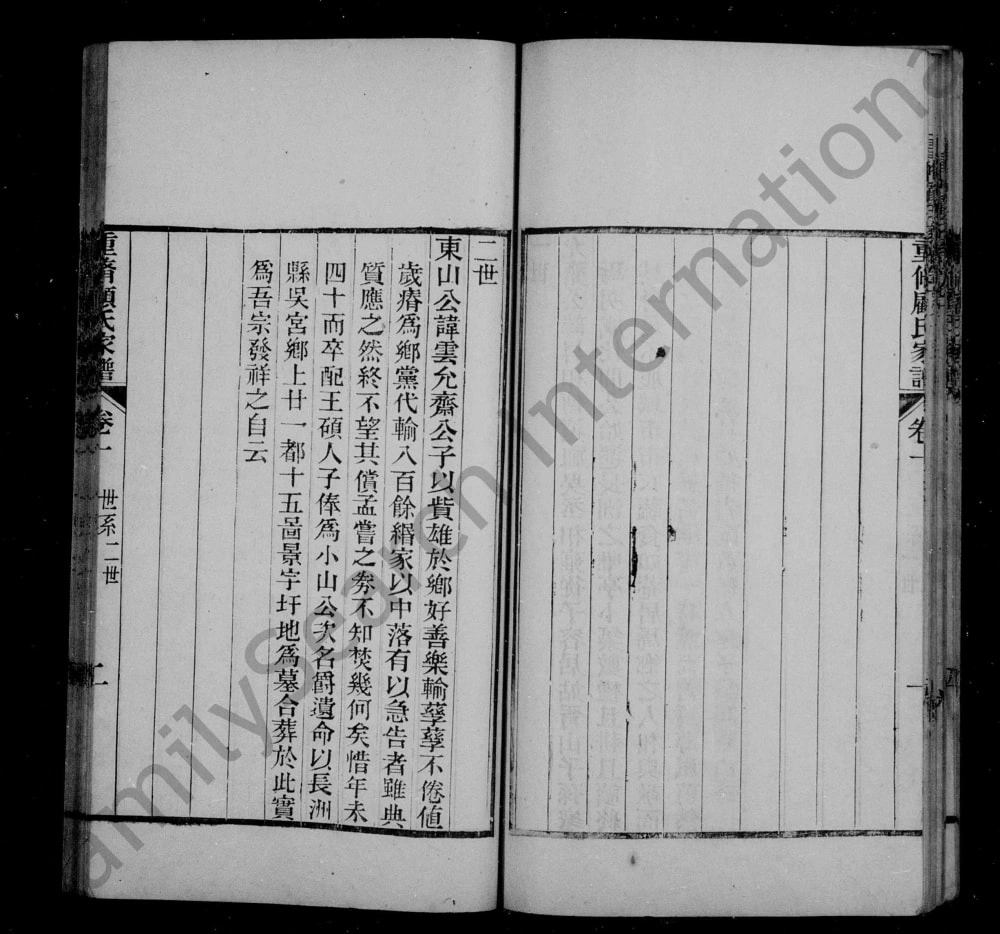 重修顧氏家譜
卷一
一
二世
東山公諱雲允齋公子以貲雄於鄉好善樂輸孳孳不倦値
歲瘠爲鄉黨代輸八百餘緡家以中落有以急告者雖典
質應之然終不望其償孟嘗之劵不知焚幾何矣惜年未
四十而卒配王碩人子俸爲小山公次名爵遺命以長洲
縣吳宮鄉上廿一都十五啚景字圩地爲墓合葬於此實
爲吾宗發祥之自云
重脩顧氏家譜
卷一
世系二世
二
FamilySearch International